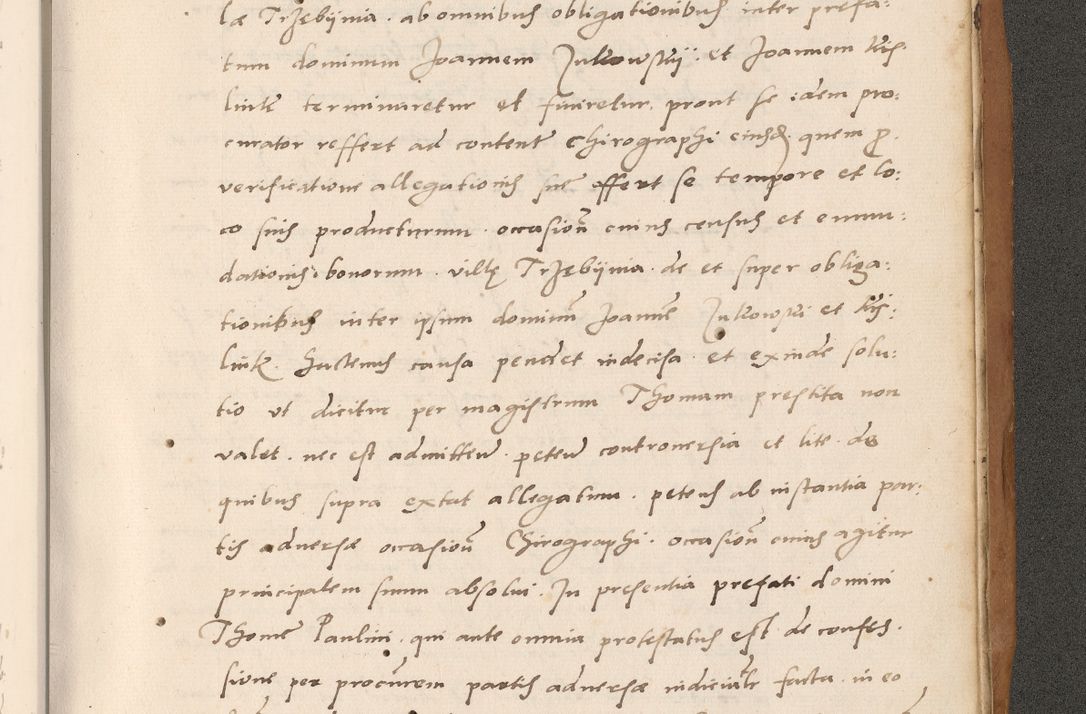 læ Trzebÿnia . ab omnibus obligationibus inter prefa:
tum dominum Joannem Zukowskÿ . et Joannem Kis
link terminaretur et finiretur, pront se idem pro:
curator reffert ad content Chirographi eiusd. quem p̱.
verificatione allegationis suæ offert se tempore et lo:
co suis producturum . occasioñ cuius census et emun:
dationis . bonorum . villę Trzebÿnia . de et super obliga:
tionibus inter ipsum dominũ Joannẽ Zukowski et Kis:
link . Hactenus causa pendet indecisa . et exinde solu:
tio ut dicitur per magistrum Thomam prestita non
valet . nec est admitten̄ . peten̄ controuersia et lite . de
quibus supra extat allegatum . petens ab instantia par:
tis aduersæ occasioñ Chirographi . occasioñ cuius agitur
principalem suum absolui . In presentia prefati domini
Thomæ Paulini . qui ante omnia protestatus est de confes.
sione per procũrem partis aduersæ iudicialr̃ facta . in eo